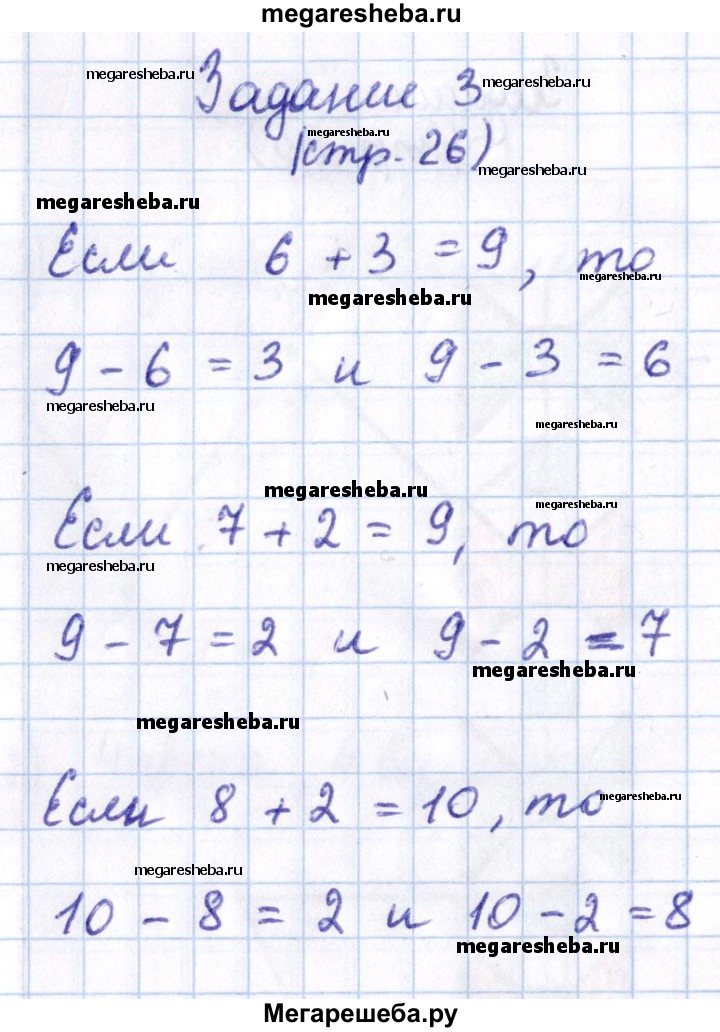 megaresheba.ru
megaresheba.ru
Задание 3
megaresheba.ru
megaresheba.ru
(стр. 26)
megaresheba.ru
megaresheba.ru
Если 6 + 3 = 9, то
megaresheba.ru
megaresheba.ru
9 - 6 = 3 и 9 - 3 = 6
megaresheba.ru
megaresheba.ru
megaresheba.ru
megaresheba.ru
Если 7 + 2 = 9, то
megaresheba.ru
9 - 7 = 2 и 9 - 2 = 7
megaresheba.ru
megaresheba.ru
Если 8 + 2 = 10, то
megaresheba.ru
megaresheba.ru
10 - 8 = 2 и 10 - 2 = 8
megaresheba.ru
Мегарешеба.ру